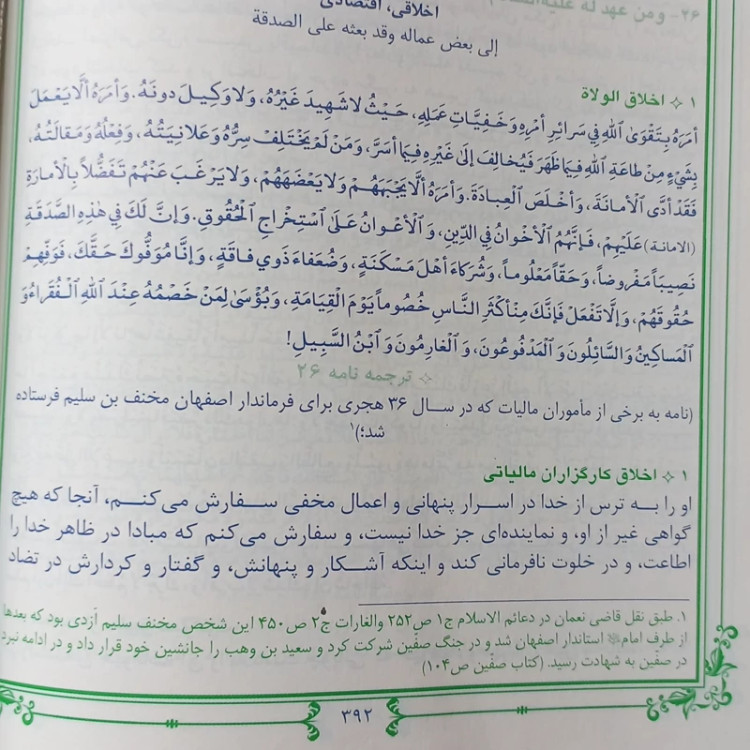 ۲۶- ومن عهد له علیه
اخلاقی، اقتصادی
إلى بعض عماله وقد بعثه على الصدقة
۱ ✧ اخلاق الولاة
أَمَرَهُ بِتَقْوَى اللهِ فِي سَرَائِرِ أَمْرِهِ وَخَفِيَّاتِ عَمَلِهِ، حَيْثُ لَا شَهِيدَ غَيْرُهُ، وَلَا وَكِيلَ دونَهُ. وَأَمَرَهُ أَلَّا يَعْمَلَ
بِشَيْءٍ مِنْ طَاعَةِ اللهِ فِيمَا ظَهَرَ فَيُخَالِفَ إِلَىٰ غَيْرِهِ فِيمَا أَسَرَّ، وَمَنْ لَمْ يَخْتَلِفْ سِرُّهُ وَعَلَانِيَتُهُ، وَفِعْلُهُ وَمَقَالَتُهُ،
فَقَدْ أَدَّى الْأَمانَةَ، وَأَخْلَصَ الْعِبادَةَ. وَأَمَرَهُ أَلَّا يَجْبَهَهُمْ وَلَا يَعْضَهَهُمْ، وَلَا يَرْغَبَ عَنْهُمْ تَفَضُّلاً بِالْأَمارَةِ
(الامانة) عَلَيْهِمْ، فَإِنَّهُمُ الْأَخْوانُ فِي الدِّينِ، وَ الْأَعْوانُ عَلَى اسْتِخْراجِ الْحُقُوقِ. وَإِنَّ لَكَ فِي هٰذِهِ الصَّدَقَةِ
نَصِيباً مَفْرُوضاً، وَحَقّاً مَعْلُوماً، وَشُرَكَاءَ أَهْلَ مَسْكَنَةٍ، وَضُعَفاءَ ذَوِي فاقَةٍ، وَإِنَّا مُوَفُّوكَ حَقَّكَ، فَوَفِّهِمْ
حُقُوقَهُمْ، وَإِلَّا تَفْعَلْ فَإِنَّكَ مِنْ أَكْثَرِ النَّاسِ خُصُوماً يَوْمَ الْقِيَامَةِ، وَبُؤْسَىٰ لِمَنْ خَصْمُهُ عِنْدَ اللهِ الْفُقَراءُ وَ
الْمَساكِينُ وَالسَّائِلُونَ وَ الْمَدْفُوعُونَ، وَ الْغارِمُونَ وَ ابْنُ السَّبِيلِ!
✧ ترجمه نامه ۲۶
(نامه به برخی از مأموران مالیات که در سال ۳۶ هجری برای فرماندار اصفهان مخنف بن سلیم فرستاده
شد؛)۱
۱ ✧ اخلاق کارگزاران مالیاتی
او را به ترس از خدا در اسرار پنهانی و اعمال مخفی سفارش می‌کنم، آنجا که هیچ
گواهی غیر از او، و نماینده‌ای جز خدا نیست، و سفارش می‌کنم که مبادا در ظاهر خدا را
اطاعت، و در خلوت نافرمانی کند و اینکه آشکار و پنهانش، و گفتار و کردارش در تضاد
۱. طبق نقل قاضی نعمان در دعائم الاسلام ج۱ ص۲۵۲ والغارات ج۲ ص۴۵۰ این شخص مخنف سلیم أزدی بود که بعدها
از طرف امام استاندار اصفهان شد و در جنگ صفّین شرکت کرد و سعید بن وهب را جانشین خود قرار داد و در ادامه نبرد
در صفّین به شهادت رسید. (کتاب صفّین ص۱۰۴)
۳۹۲